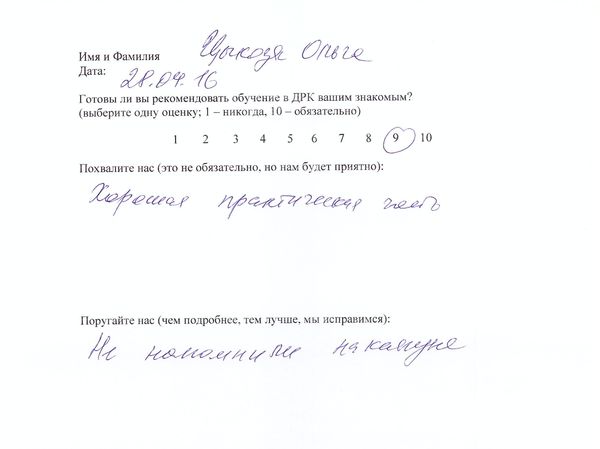 Имя и Фамилия Цыкозя Ольга
Дата: 28.04.16
Готовы ли вы рекомендовать обучение в ДРК вашим знакомым?
(выберите одну оценку; 1 – никогда, 10 – обязательно)
1 2 3 4 5 6 7 8 9 10
Похвалите нас (это не обязательно, но нам будет приятно):
Хорошая практическая часть
Поругайте нас (чем подробнее, тем лучше, мы исправимся):
Не напомнили накануне